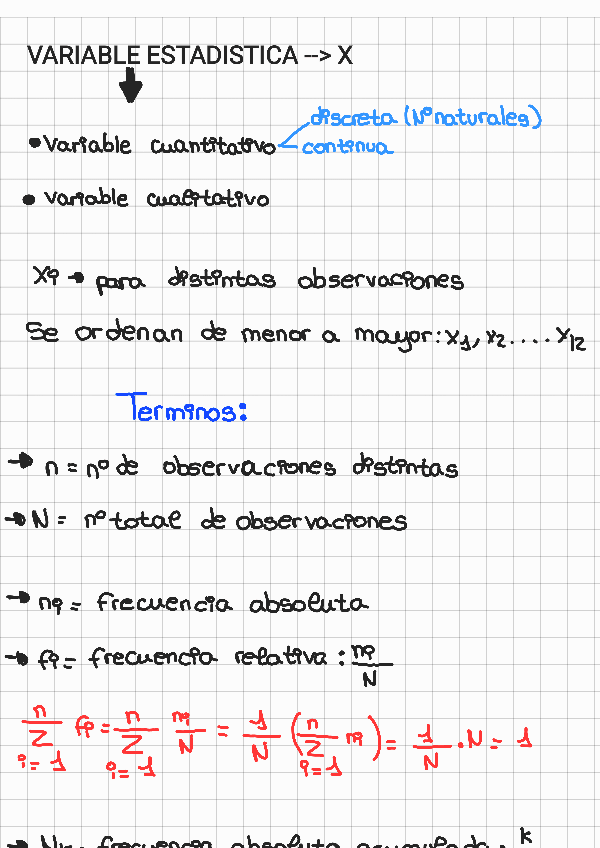 VARIABLE ESTADISTICA --> X
• Variable cuantitativo
discreta (Nº naturales)
continua
• variable cualitativo
Xi → para distintas observaciones
Se ordenan de menor a mayor: x1, x2 .... x12
Terminos:
→ n = nº de observaciones distintas
→ N = nº total de observaciones
→ ni = frecuencia absoluta
→ fi = frecuencia relativa : ni/N
n Σ i=1 fi = n Σ i=1 ni/N = 1/N (n Σ i=1 ni) = 1/N · N = 1
frecuencia absoluta acumulada : k